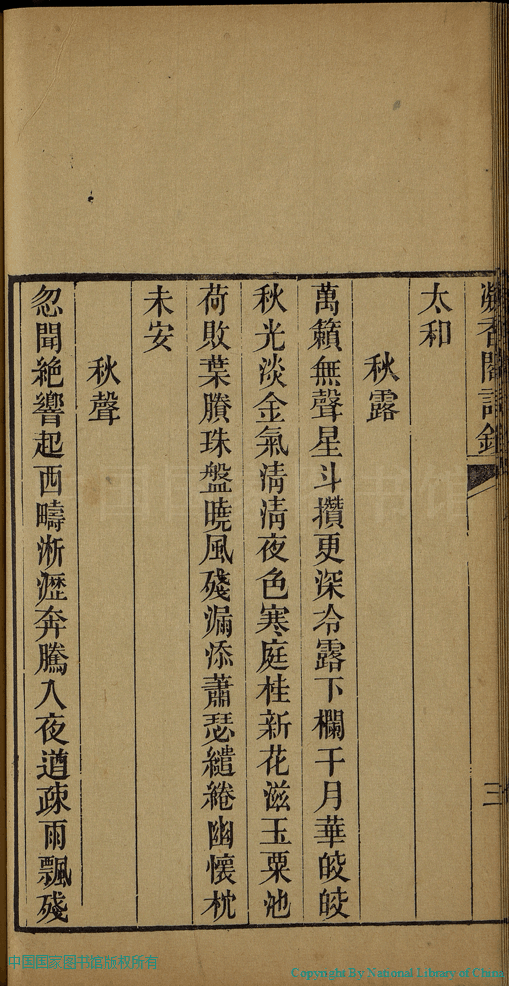 凝香閣詩鈔
三
太和
秋露
萬籟無聲星斗攢更深冷露下欄干月華皎皎
秋光淡金氣淸淸夜色寒庭桂新花滋玉粟池
荷敗葉賸珠盤曉風殘漏添蕭瑟繾綣幽懷枕
未安
秋聲
忽聞絶響起西疇淅瀝奔騰入夜遒疎雨飄殘
中国国家图书馆
中国国家图书馆版权所有
Copyright By National Library of China